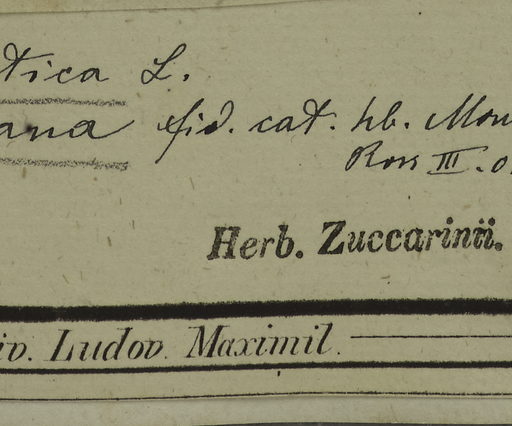 tica L.
ana fid. cat. hb. Mon
Ross III. 
Herb. Zuccarinii.
iv. Ludov. Maximil.